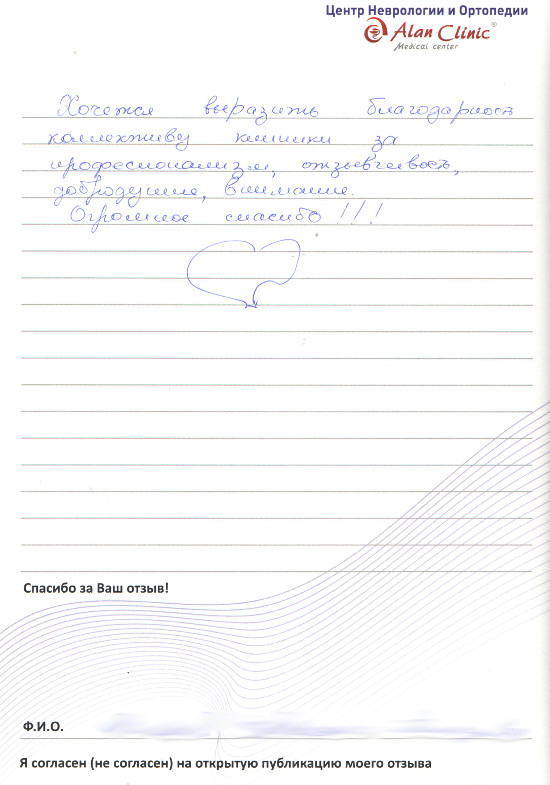 Центр Неврологии и Ортопедии
Alan Clinic®
Medical center
Хочется выразить благодарность
коллективу клиники за
профессионализм, отзывчивость,
добродушие, внимание.
Огромное спасибо!!!
Спасибо за Ваш отзыв!
Ф.И.О.
Я согласен (не согласен) на открытую публикацию моего отзыва